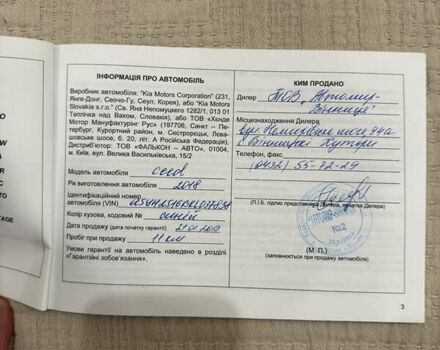 ІНФОРМАЦІЯ ПРО АВТОМОБІЛЬ
Виробник автомобіля: "Kia Motors Corporation" (231,
Янге-Донг, Сеочо-Гу, Сеул, Корея), або "Kia Motors
Slovakia s.r.o." (Св. Яна Непомуцкего 1282/1, 013 01
Теплічка над Вахом, Словакія), або ТОВ «Хенде
Мотор Мануфактурінг Рус» (197706, Санкт – Пе-
тербург, Курортний район, м. Сестрорецьк, Лева-
шовське шосе, б. 20, літ. А Російська Федерація),
Дистриб'ютор: ТОВ «ФАЛЬКОН – АВТО», 01004,
м. Київ, вул. Велика Васильківська, 15/2
Модель автомобіля ceed
Рік виготовлення автомобіля 2018
Ідентифікаційний номер
автомобіля (VIN)
Колір кузова, кодовий № синій
Дата продажу (дата початку гарантії)
Пробіг при продажу 11 км
Умови гарантії на автомобіль наведено в розділі
«Гарантійні зобов'язання».
КИМ ПРОДАНО
Дилер ТОВ „Автомир-
Вінниця"
Місцезнаходження Дилера
вул. Немирівське шосе 94а
Вінницькі Хутори
Телефон, факс
(0432) 55-72-29
(П.І.Б. підпис представника Дилера, печатка Дилера)
№2
(М. П.)
(заповнюється при продажу автомобіля)
3